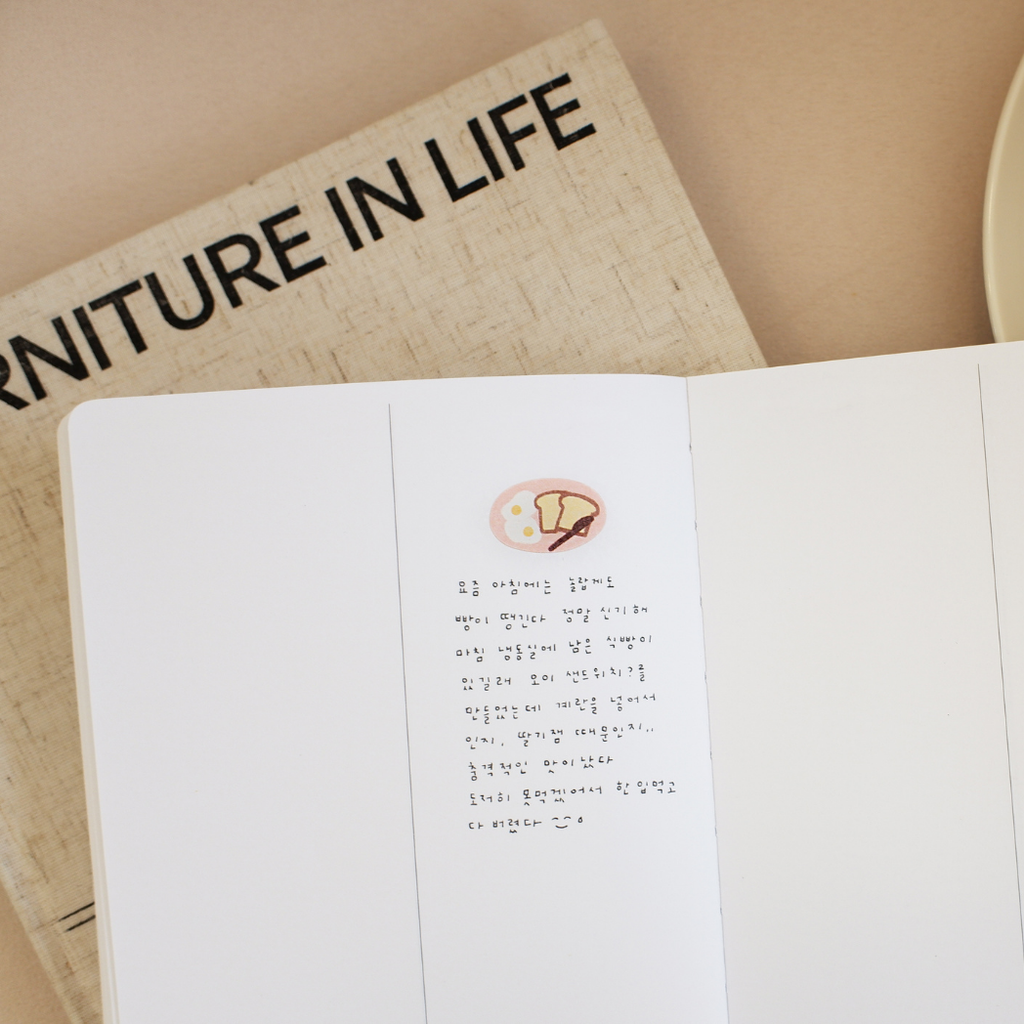 RNITURE IN LIFE
요즘 아침에는 놀랍게도
빵이 땡긴다 정말 신기해
마침 냉동실에 남은 식빵이
있길래 오이 샌드위치?를
만들었는데 계란을 넣어서
인지, 딸기잼 때문인지..
충격적인 맛이 났다
도저히 못먹겠어서 한 입먹고
다 버렸다